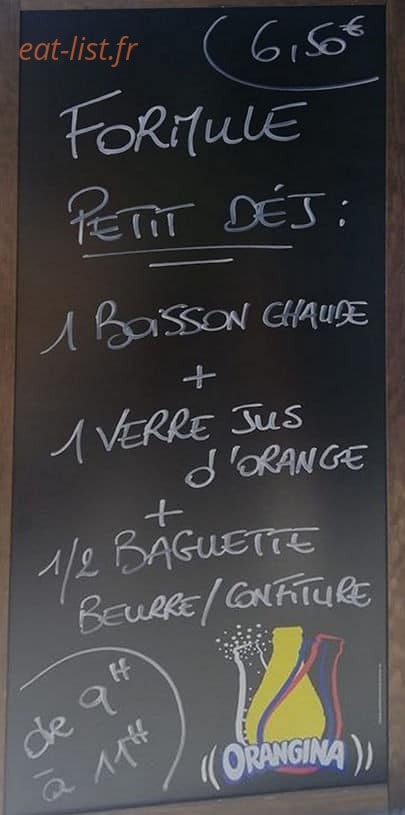 eat-list.fr
6,50€
FORMULE
PETIT DÉJ :
1 BOISSON CHAUDE
+
1 VERRE JUS
d'ORANGE
+
1/2 BAGUETTE
BEURRE/CONFITURE
de 9H
à 11H
ORANGINA